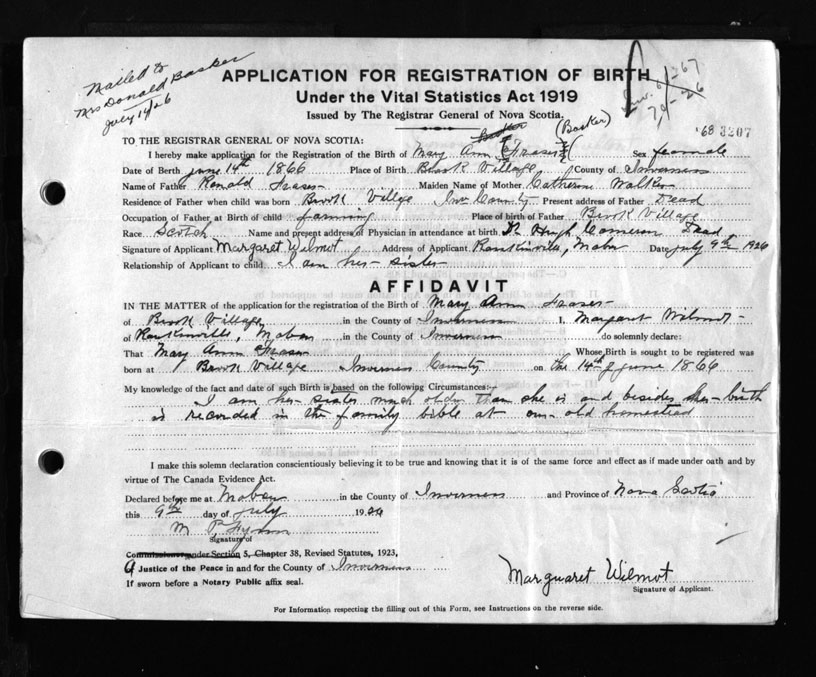 Mailed to
Mrs Donald Basker
July 14/26
APPLICATION FOR REGISTRATION OF BIRTH
Under the Vital Statistics Act 1919
Issued by The Registrar General of Nova Scotia.
68 3207
(Basker)
TO THE REGISTRAR GENERAL OF NOVA SCOTIA:
I hereby make application for the Registration of the Birth of Mary Ann Fraser Sex female
Date of Birth June 14th 1866 Place of Birth Brook Village (County of Inverness
Name of Father Ronald Fraser Maiden Name of Mother Catherine Walker
Residence of Father when child was born Brook Village Inv County Present address of Father Dead
Occupation of Father at Birth of child farming Place of birth of Father Brook Village
Race Scotch Name and present address of Physician in attendance at birth Hugh Cameron Dead
Signature of Applicant Margaret Wilmot Address of Applicant Rankinville, Mabou Date July 9th 1926
Relationship of Applicant to child I am her sister
AFFIDAVIT
IN THE MATTER of the application for the registration of the Birth of Mary Ann Fraser
of Brook Village in the County of Inverness I, Margaret Wilmot
of Rankinville, Mabou in the County of Inverness do solemnly declare:
That Mary Ann Fraser Whose Birth is sought to be registered was
born at Brook Village Inverness County on the 14th of June 1866
My knowledge of the fact and date of such Birth is based on the following Circumstances:—
I am her sister much older than she is and besides her birth
is recorded in the family bible at our old homestead
I make this solemn declaration conscientiously believing it to be true and knowing that it is of the same force and effect as if made under oath and by
virtue of The Canada Evidence Act.
Declared before me at Mabou in the County of Inverness and Province of Nova Scotia
this 9th day of July 1926
M
Signature of
Commissioner under Section 5, Chapter 38, Revised Statutes, 1923,
A Justice of the Peace in and for the County of Inverness
If sworn before a Notary Public affix seal.
Marguaret Wilmot
Signature of Applicant.
For Information respecting the filling out of this Form, see Instructions on the reverse side.